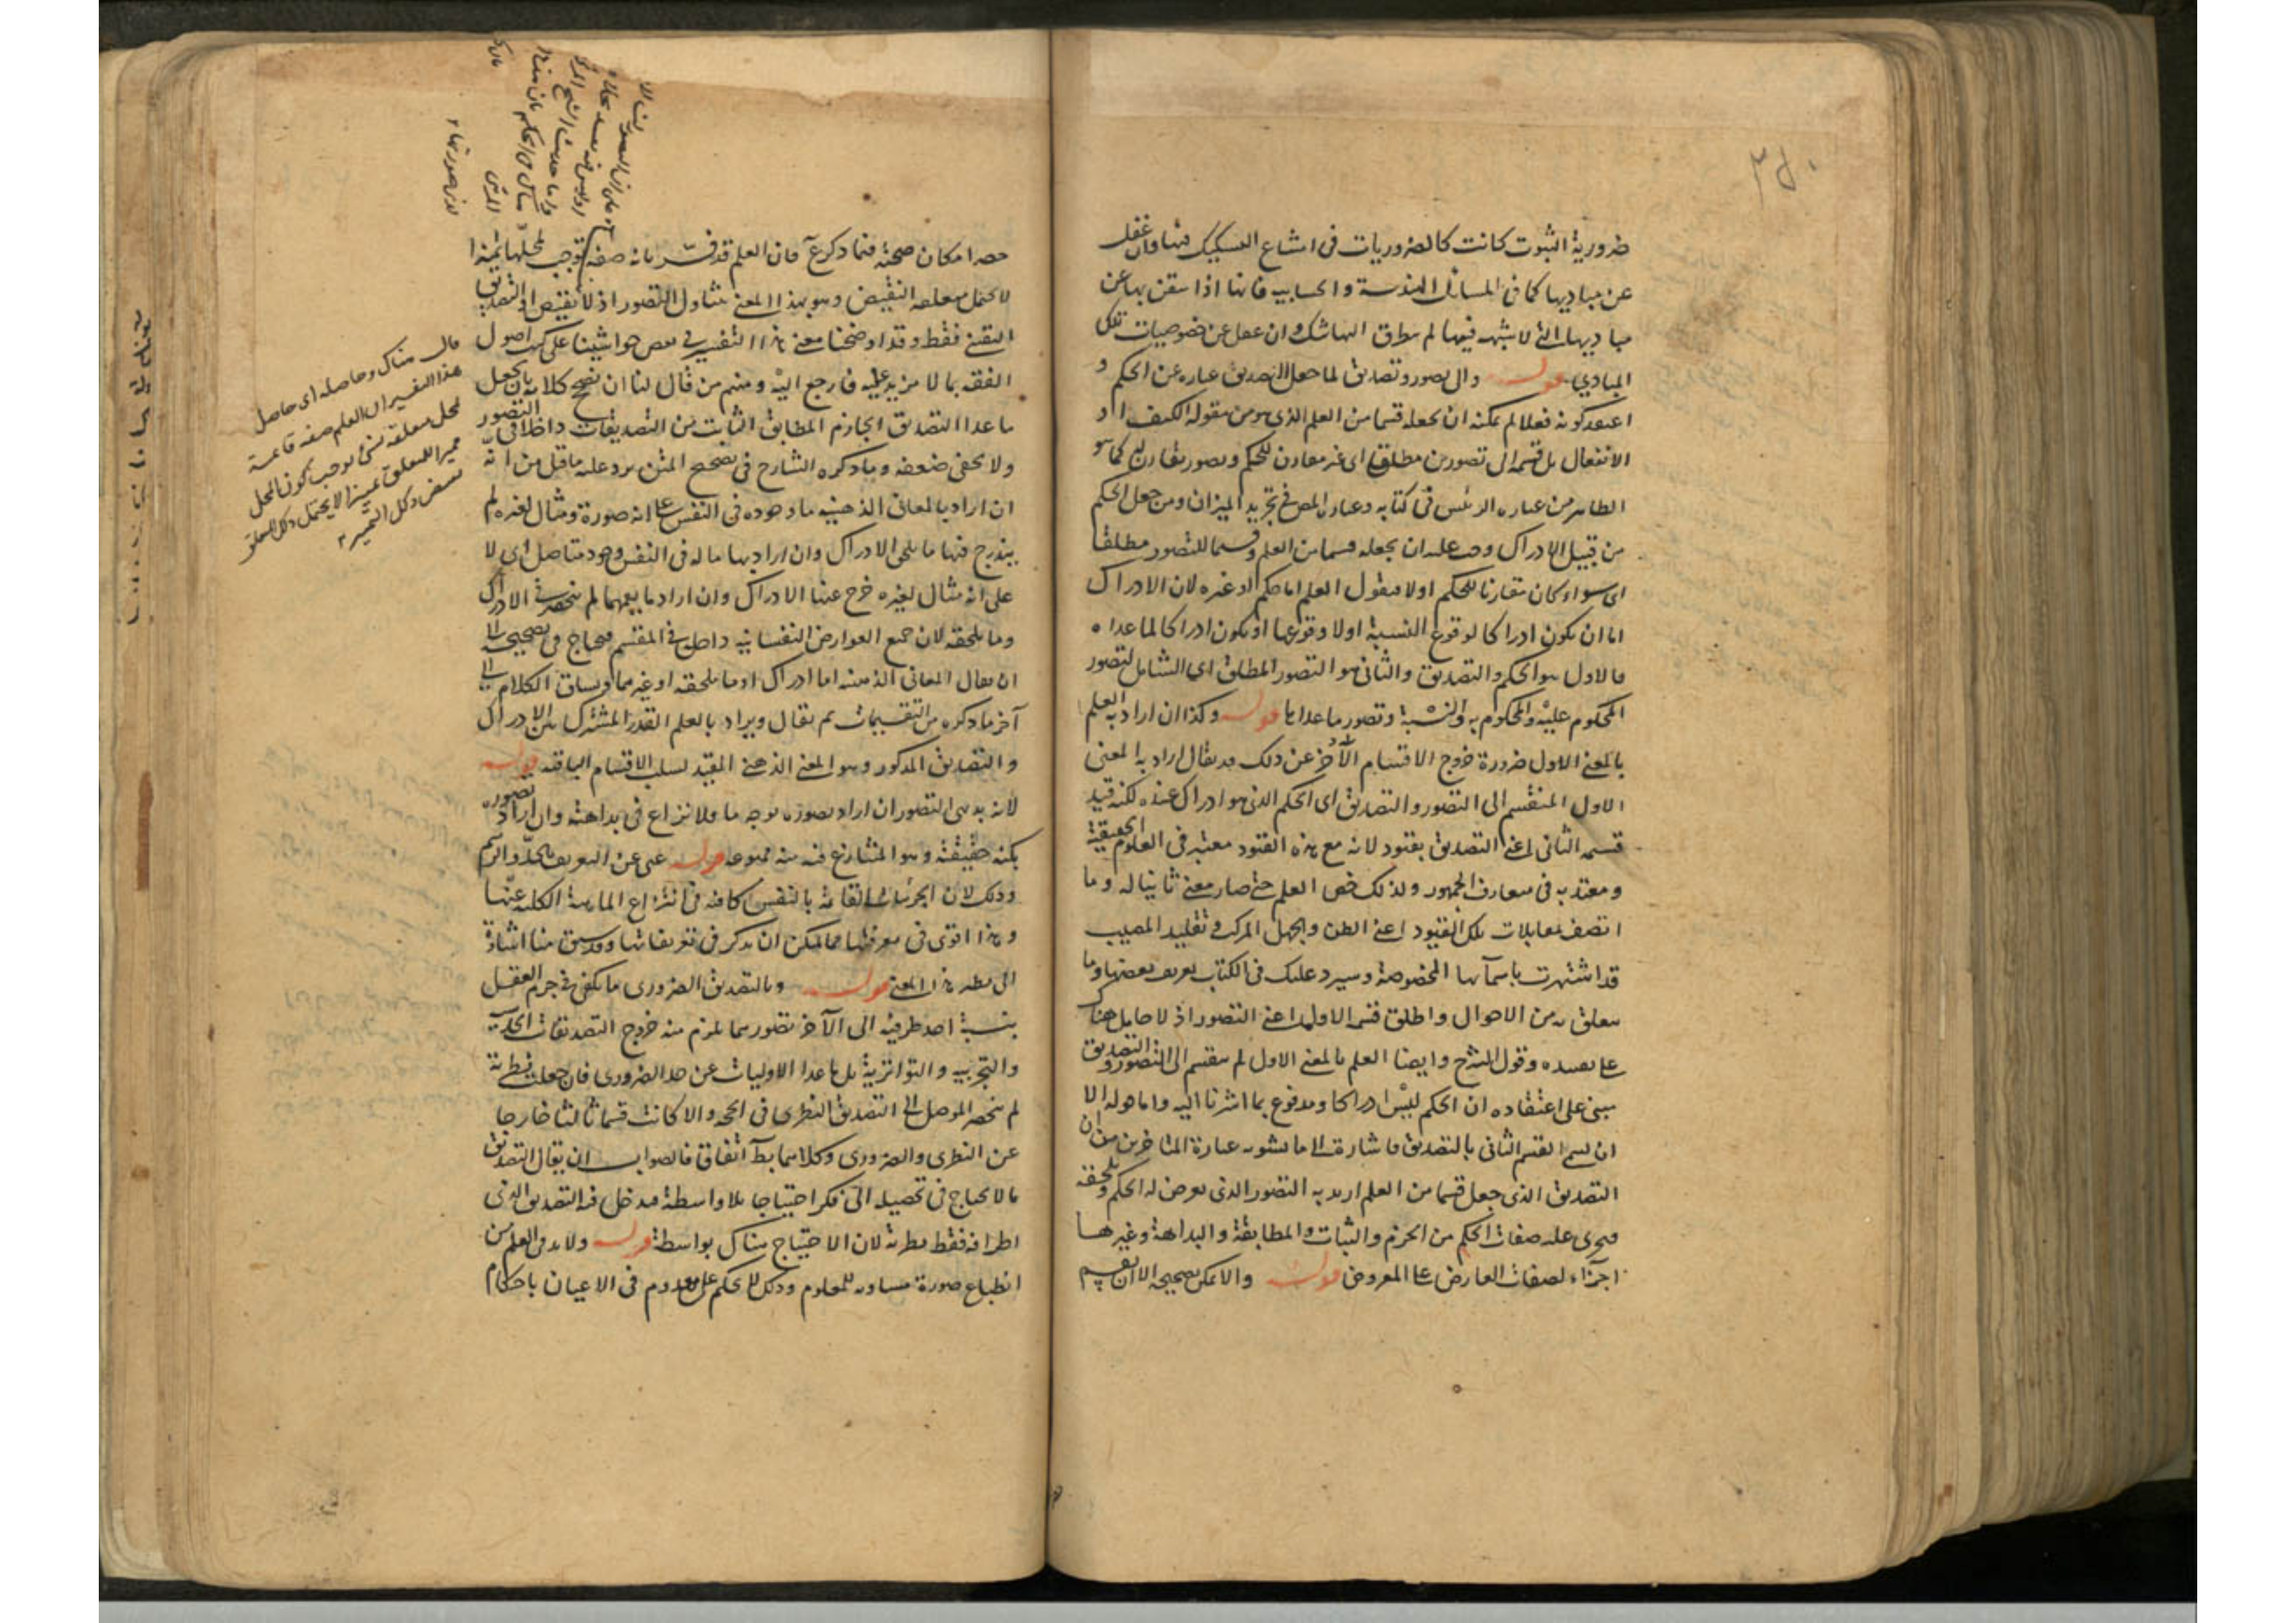 ضرورية الثبوت كانت كالضروريات في امتناع التشكيك فيها وان غفل
عن مباديها كما في المسائل الهندسة والحسابية فانها اذا تيقن بها عن
مباديها التي لا شبهة فيها لم يتطرق اليها شك وان غفل عن خصوصيات تلك
المبادي قوله والى تصور وتصديق لما جعل التصديق عبارة عن الحكم و
اعتقد كونه فعلا لم يمكنه ان يجعله قسما من العلم الذي هو من مقولة الكيف او
الانفعال بل قسمه الى تصورين مطلقا اى غير مقارن للحكم وتصور يقارن له كما هو
الظاهر من عبارة الرئيس في كتابه وعبارة المص في تجريد الميزان ومن جعل الحكم
من قبيل الادراك وجب عليه ان يجعله قسما من العلم وقسيما للتصور مطلقا
اى سواء كان مقارنا للحكم اولا فيقول العلم اما حكم او غيره لان الادراك
اما ان يكون ادراكا لوقوع النسبة اولا وقوعها او يكون ادراكا لما عداه
فالاول هو الحكم والتصديق والثاني هو التصور المطلق اى الشامل لتصور
المحكوم عليه والمحكوم به والنسبة وتصور ما عداها قوله وكذا ان اراد به العلم
بالمعنى الاول ضرورة خروج الاقسام الأخر عن ذلك قد يقال اراد به المعنى
الاول المنقسم الى التصور والتصديق اى الحكم الذي هو ادراك عنده لكنه قيد
قسمه الثاني اعني التصديق بقيود لانه مع هذه القيود معتبر في العلوم الحقيقية
ومعتد به في معارف الجمهور ولذلك خص العلم حتى صار معنى ثانيا له وما
اتصف بمقابلات تلك القيود اعني الظن والجهل المركب وتقليد المصيب
قد اشتهرت باسمائها المخصوصة وسيرد عليك في الكتاب تعريف بعضها وما
يتعلق به من الاحوال واطلق قسمه الاول اعني التصور اذ لا حامل هناك
على تقييده وقول الشرح وايضا العلم بالمعنى الاول لم ينقسم الى التصور والتصديق
مبني على اعتقاده ان الحكم ليس ادراكا ومدفوع بما اشرنا اليه واما قوله الا
ان يسمى القسم الثاني بالتصديق فاشارة الى ما يشعر به عبارة المتاخرين من ان
التصديق الذي جعل قسما من العلم اريد به التصور الذي يعرض له الحكم ويلحقه
فيجرى عليه صفات الحكم من الجزم والثبات والمطابقة والبداهة وغيرها
اجزاء لصفات العارض على المعروض قوله ولا يمكن تصحيحه الا ان يعمم
حصر امكان صحته فيما ذكر ع فان العلم قد فسر بانه صفة توجب لمحلها تميزا
لا يحتمل متعلقه النقيض وهو بهذا المعنى يتناول التصور اذ لا نقيض له والتصديق
اليقيني فقط وقد اوضحنا معنى هذا التفسير في بعض حواشينا على كتب اصول
الفقه بما لا مزيد عليه فارجع اليه ومنهم من قال لنا ان نصحح كلامه بان يجعل
ما عدا التصديق الجازم المطابق الثابت من التصديقات داخلا في التصور
ولا يخفى ضعفه وما ذكره الشارح في تصحيح المتن يرد عليه ما قيل من انه
ان اراد بالمعاني الذهنية ما وجوده في النفس على انه صورة ومثال لغيره لم
يندرج فيها ما يلحق الادراك وان اراد بها ما له في النفس وجود متاصل اى لا
على انه مثال لغيره خرج عنها الادراك وان اراد ما يعمهما لم ينحصر في الادراك
وما يلحقه لان جميع العوارض النفسانية داخل في المقسم فيحتاج في تصحيحه الى
ان يقال المعاني الذهنية اما ادراك او ما يلحقه او غيرهما ويساق الكلام الى
آخر ما ذكره من التقسيمات ثم يقال ويراد بالعلم القدر المشترك بين الادراك
والتصديق المذكور وهو المعنى الذهني المقيد بسلب الاقسام الباقية قوله
لانه بديهي التصور ان اراد تصوره بوجه ما فلا نزاع في بداهته وان اراد تصوره
بكنه حقيقته وهو المتنازع فيه منه ممنوعة قوله غنى عن التعريف بالحد والرسم
وذلك لان الجزئيات القائمة بالنفس كافية في انتزاع الماهية الكلية عنها
وهذا اقوى في معرفتها مما يمكن ان يذكر في تعريفاتها وقد سبق منا اشارة
الى نظير هذا المعنى قوله وبالتصديق الضروري ما يكفى في جزم العقل
بنسبة احد طرفيه الى الآخر تصورهما يلزم منه خروج التصديقات الحدسية
والتجربية والتواترية بل ما عدا الاوليات عن حد الضروري فان جعلت نظرية
لم ينحصر الموصل الى التصديق النظري في الحجة والا كانت قسما ثالثا خارجا
عن النظري والضروري وكلاهما بط اتفاقا فالصواب ان يقال التصديق
ما لا يحتاج في تحصيله الى فكر احتياجا بلا واسطة فيدخل فيه التصديق الذي
اطرافه فقط نظرية لان الاحتياج هناك بواسطة قوله ولا بد في العلم من
انطباع صورة مساوية للمعلوم وذلك للحكم على معدوم في الاعيان باحكام
قال هناك وحاصله اى حاصل
هذا التفسير ان العلم صفة قائمة
بمحل متعلقة بشئ توجب كون المحل
مميزا للمتعلق تميزا لا يحتمل ذلك المتعلق
نقيض ذلك التميز